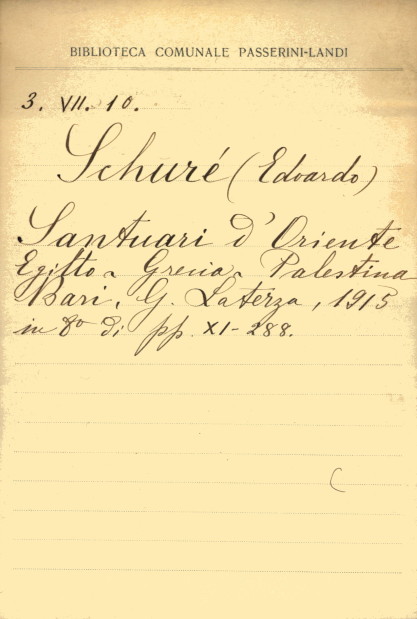 BIBLIOTECA COMUNALE PASSERINI-LANDI
3. VII. 10.
Schuré (Edoardo)
Santuari d'Oriente
Egitto - Grecia - Palestina
Bari, G. Laterza, 1915
in 8º di pp. XI-288.